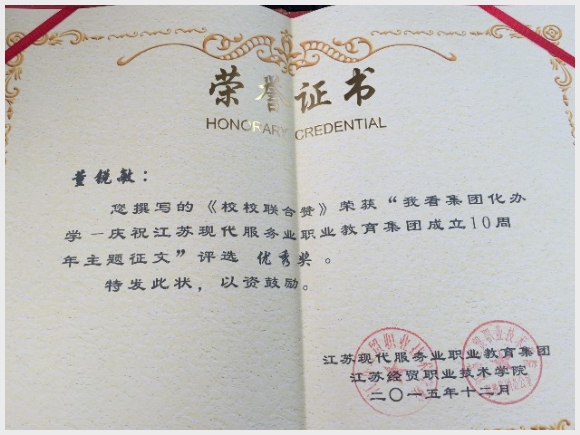 荣誉证书
HONORARY CREDENTIAL
董锐敏：
您撰写的《校校联合赞》荣获“我看集团化办
学—庆祝江苏现代服务业职业教育集团成立10周
年主题征文”评选 优秀奖 。
特发此状，以资鼓励。
江苏现代服务业职业教育集团
江苏经贸职业技术学院
二〇一五年十二月